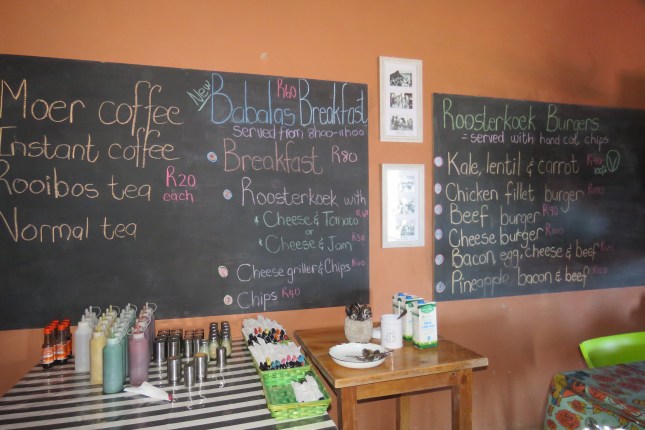 Moer coffee
Instant coffee
Rooibos tea R20
each
Normal tea
New
Babalas Breakfast R60
served from 8h00-11h00
Breakfast R80
Roosterkoek with
Cheese & Tomato
or
Cheese & Jam
Cheese griller & Chips
Chips R40
Roosterkoek Burgers
= served with hand cut chips
Kale, lentil & carrot
V
Chicken fillet burger
Beef burger
Cheese burger
Bacon egg, cheese & beef
Pineapple, bacon & beef